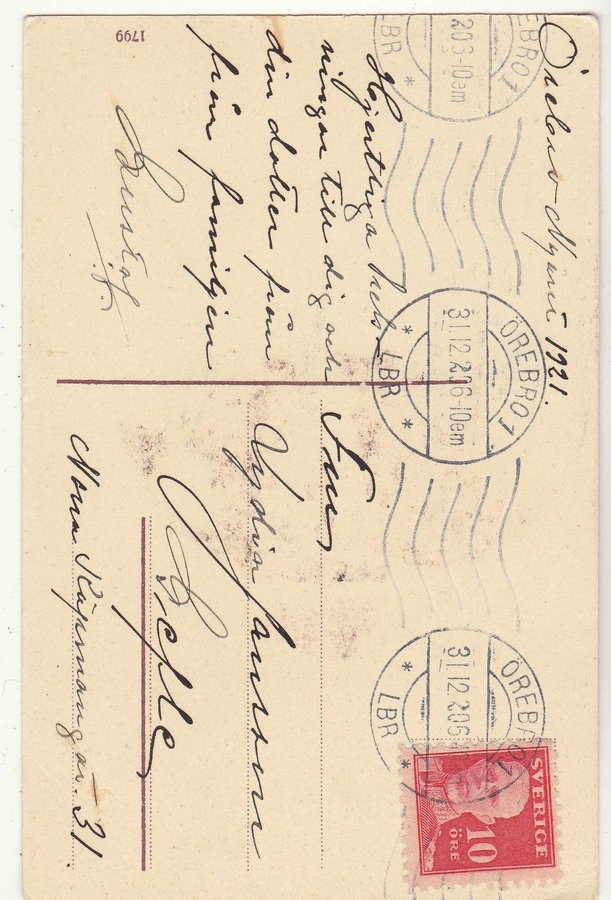 Örebro Nyåret 1921.
Hjertliga häls-
ningar till dig och
din dotter från
från familjen
Gustaf
1799
Fru
Lydia Jansson
Gefle
Norra Köpmangat. 31
ÖREBRO 1
31.12.20 6-10em
* LBR *
ÖREBRO 1
31.12.20 6-10em
* LBR *
ÖREBRO 1
20 6-10em
LBR *
SVERIGE
10
ÖRE